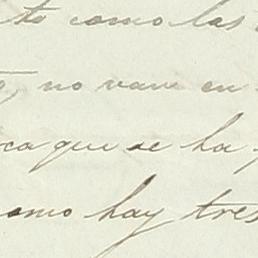 to como las
no van en
ca que se ha
omo hay tres